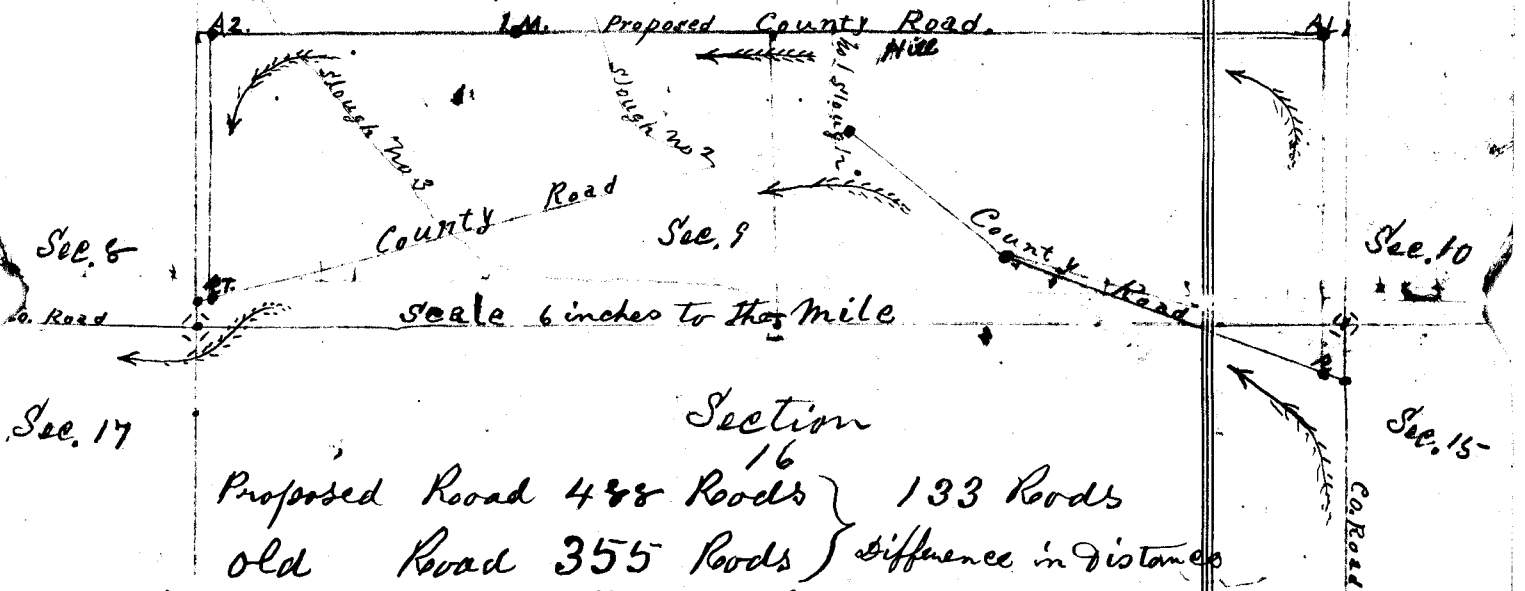 A2. 1.M. Proposed County Road. A1.
Hill
No 1 Slough.
Slough No 2
Slough No 3
County Road
Sec. 8
Sec. 9
County Road
Sec. 10
Co. Road
Scale 6 inches to the Mile
Sec. 17
Section
16
Sec. 15
Proposed Road 488 Rods } 133 Rods
Old Road 355 Rods } Difference in Distance
Co. Road